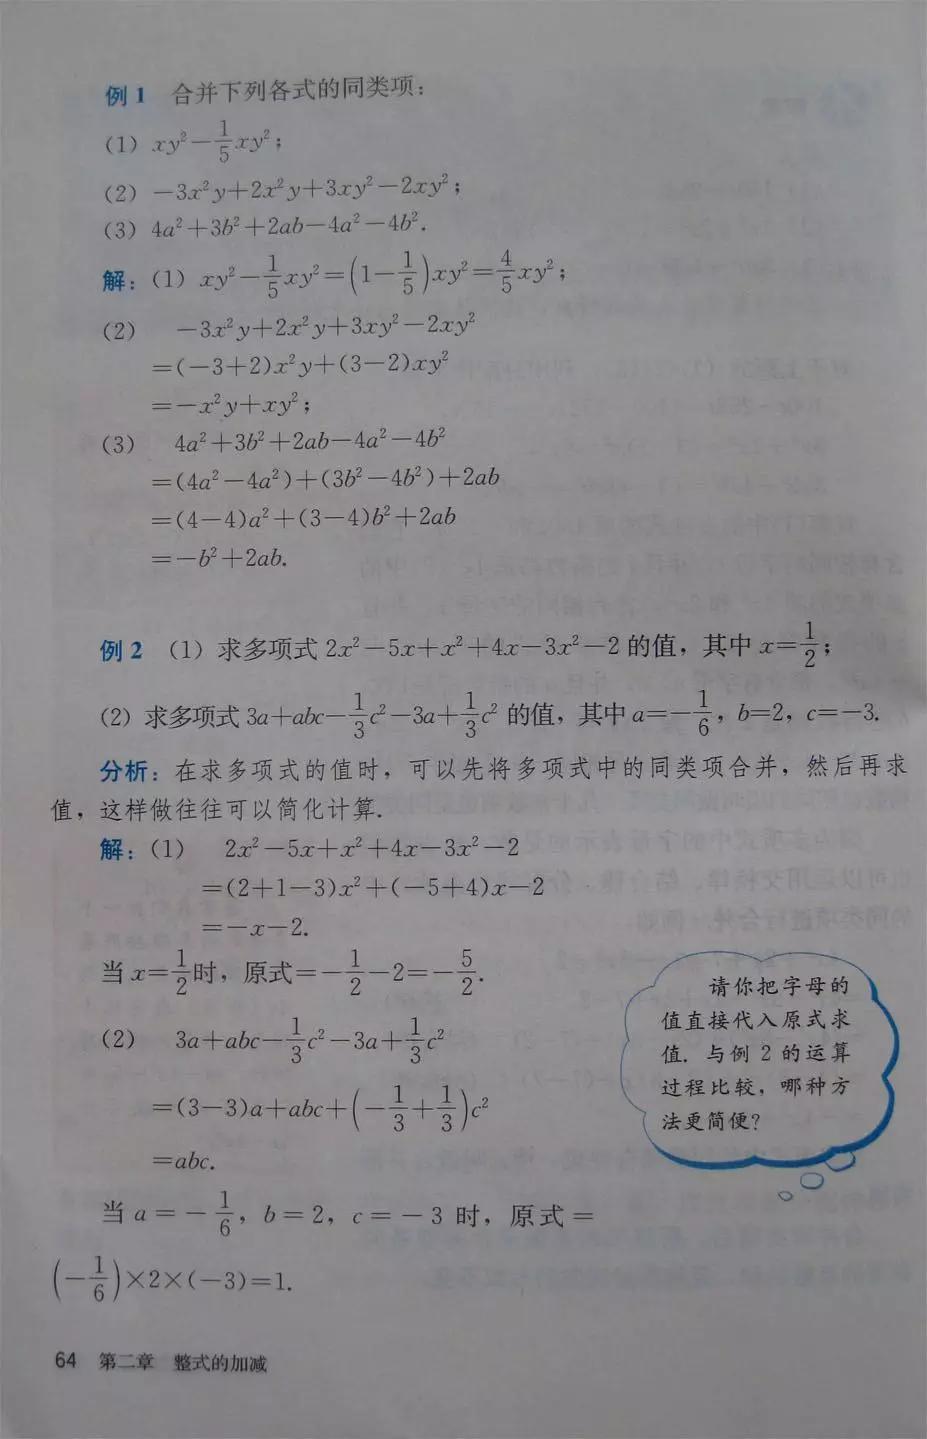 例1 合并下列各式的同类项：
(1) xy²－1/5xy²；
(2) －3x²y＋2x²y＋3xy²－2xy²；
(3) 4a²＋3b²＋2ab－4a²－4b².
解：(1) xy²－1/5xy²＝(1－1/5)xy²＝4/5xy²；
(2) －3x²y＋2x²y＋3xy²－2xy²
＝(－3＋2)x²y＋(3－2)xy²
＝－x²y＋xy²；
(3) 4a²＋3b²＋2ab－4a²－4b²
＝(4a²－4a²)＋(3b²－4b²)＋2ab
＝(4－4)a²＋(3－4)b²＋2ab
＝－b²＋2ab.
例2 (1) 求多项式 2x²－5x＋x²＋4x－3x²－2 的值，其中 x＝1/2；
(2) 求多项式 3a＋abc－1/3c²－3a＋1/3c² 的值，其中 a＝－1/6，b＝2，c＝－3.
分析：在求多项式的值时，可以先将多项式中的同类项合并，然后再求
值，这样做往往可以简化计算.
解：(1) 2x²－5x＋x²＋4x－3x²－2
＝(2＋1－3)x²＋(－5＋4)x－2
＝－x－2.
当 x＝1/2时，原式＝－1/2－2＝－5/2.
(2) 3a＋abc－1/3c²－3a＋1/3c²
＝(3－3)a＋abc＋(－1/3＋1/3)c²
＝abc.
当 a＝－1/6，b＝2，c＝－3 时，原式＝
(－1/6)×2×(－3)＝1.
请你把字母的
值直接代入原式求
值. 与例 2 的运算
过程比较，哪种方
法更简便?
64 第二章 整式的加减